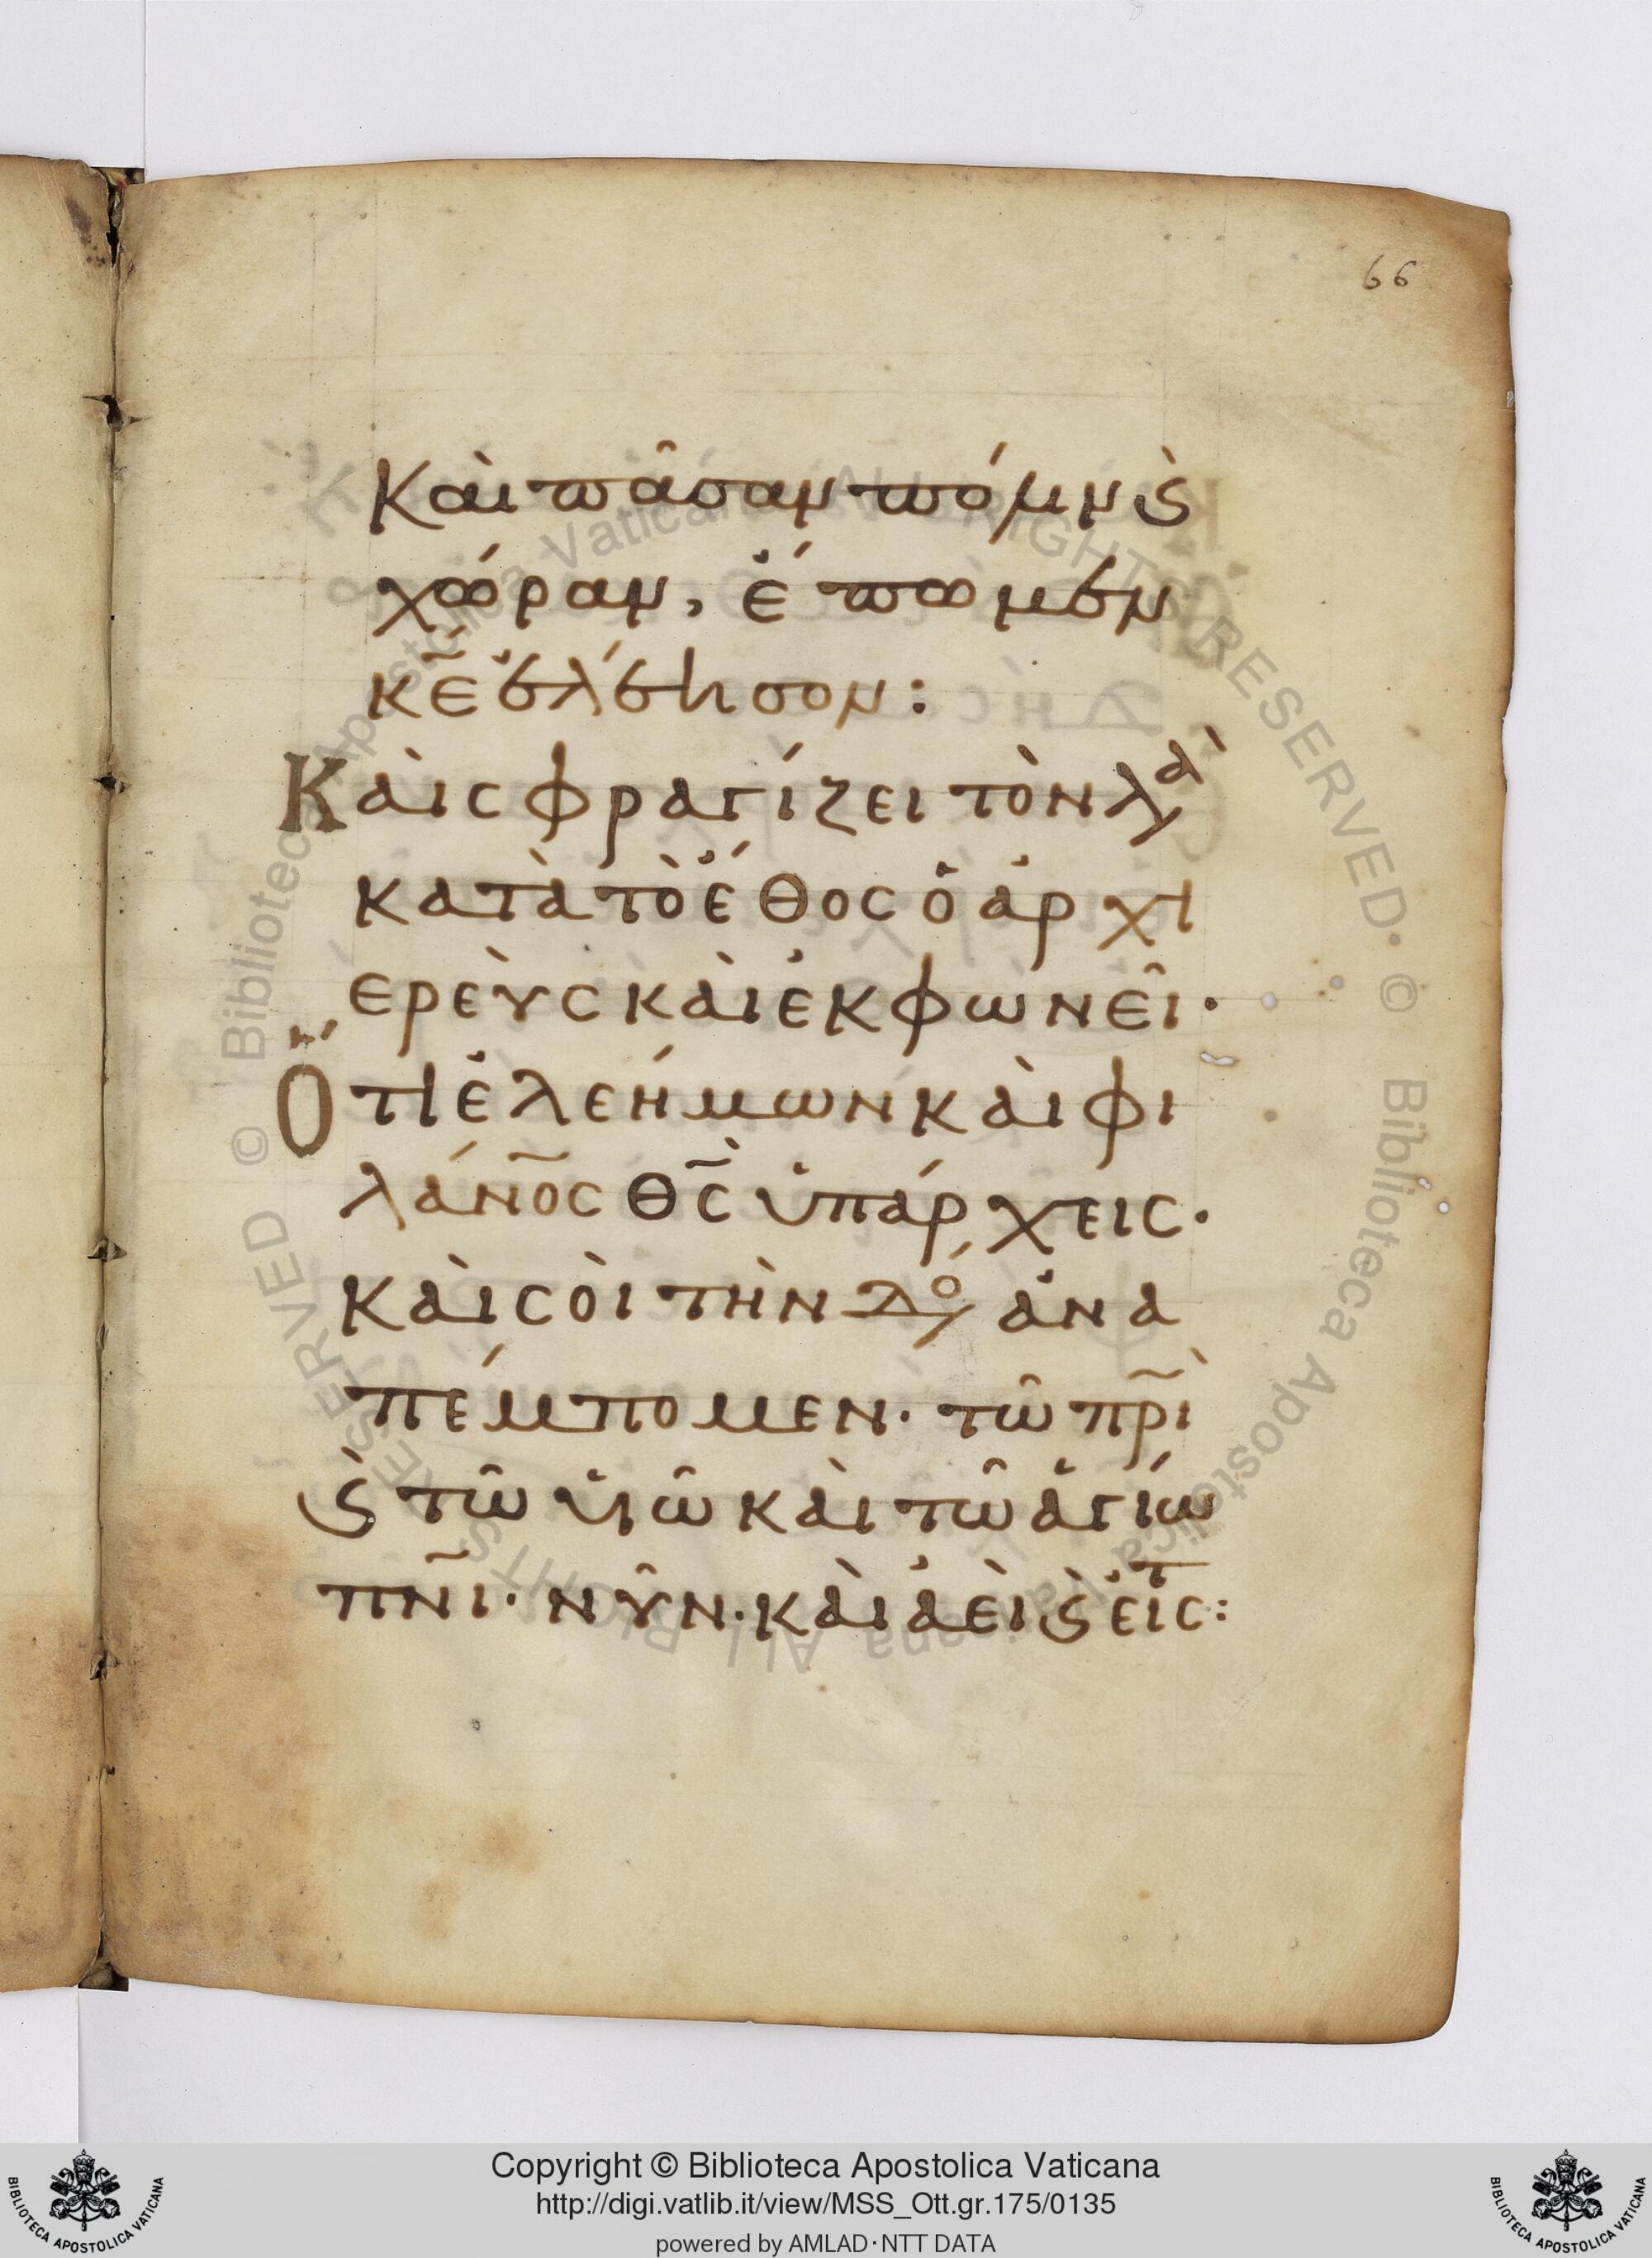 66
Καὶ πᾶσαν πόλιν ϛ̀
χώραν, εἴπωμεν
κ̅ε̅ ἐλέησον:
Καὶ σφραγίζει τὸν λα
κατὰ τὸ ἔθος ὁ ἀρχι
ερεὺς καὶ ἐκφωνεῖ·
Ὅτι ἐλεήμων καὶ φι
λάν̅ο̅ς θ̅ς̅ ὑπάρχεις·
καὶ σοὶ τὴν δό ἀνα
πέμπομεν· τῶ π̅ρ̅ι̅
ϛ̀ τῶ υἱῶ καὶ τῶ ἁγίω
π̅ν̅ι̅· νῦν· καὶ ἀεὶ ϛ̀ εἰς τ:
Copyright © Biblioteca Apostolica Vaticana
http://digi.vatlib.it/view/MSS_Ott.gr.175/0135
powered by AMLAD·NTT DATA
BIBLIOTECA APOSTOLICA VATICANA
BIBLIOTECA APOSTOLICA VATICANA